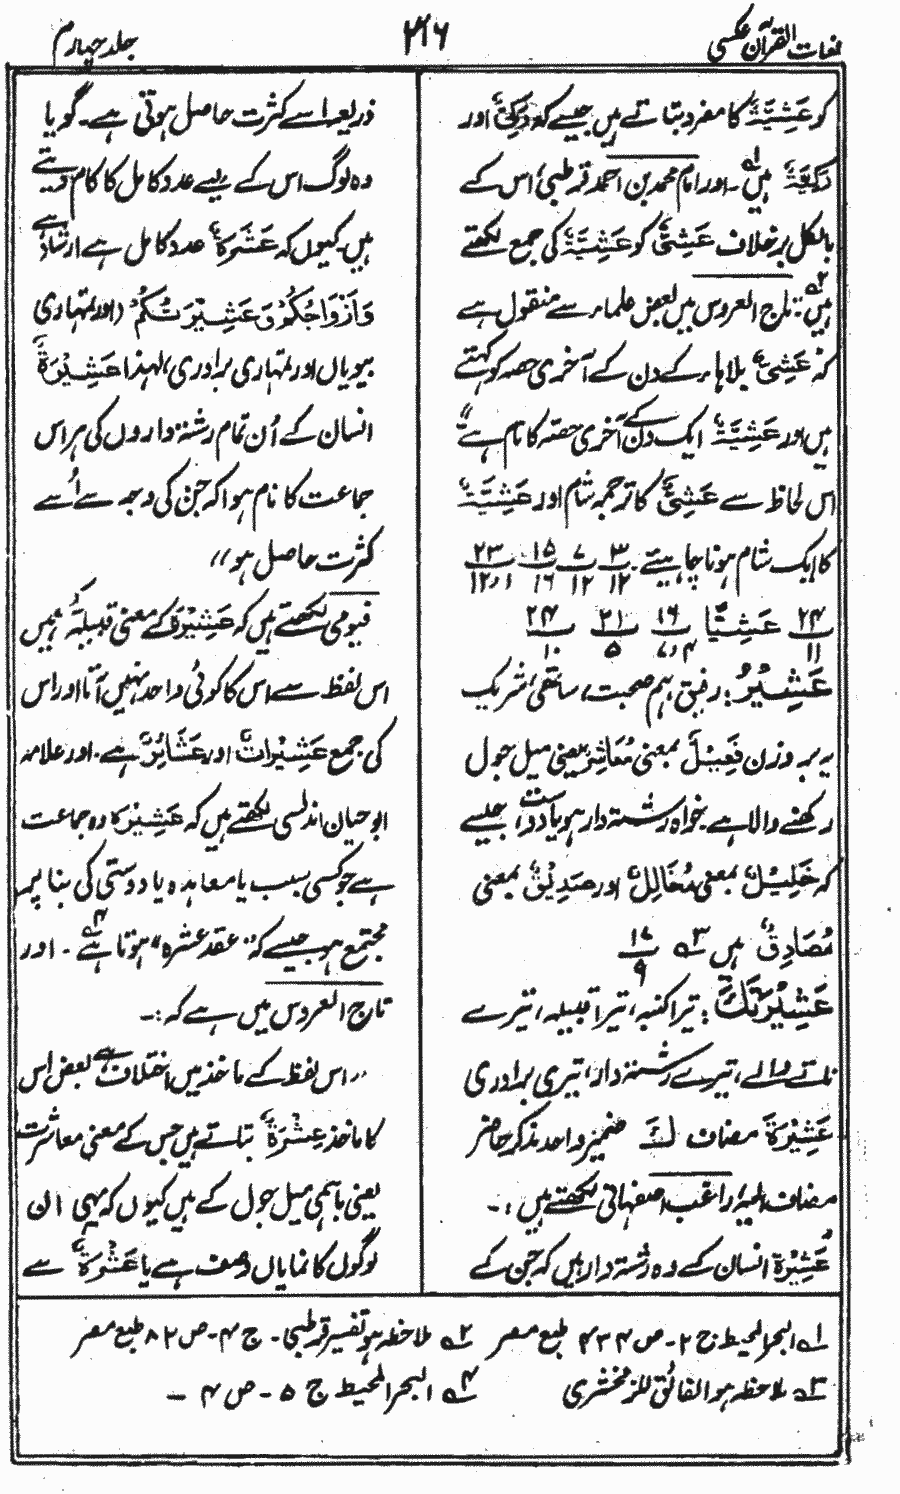 لغات القرآن عکسی
۳۱۶
جلد چہارم
کو عَشِیَّۃٌ کا مفرد بتاتے ہیں جیسے کہ رَکِیٌّ اور
رَکِیَّۃٌ ہیں۔ اور امام محمد بن احمد قرطبی، اس کے
بالکل برخلاف عَشِیٌّ کو عَشِیَّۃٌ کی جمع لکھتے
ہیں۔ تاج العروس میں بعض علماء سے منقول ہے
کہ عَشِیٌّ بلا ہاء کے دن کے آخری حصہ کو کہتے
ہیں اور عَشِیَّۃٌ ایک دن کے آخری حصّہ کا نام ہے
اس لحاظ سے عَشِیٌّ کا ترجمہ شام اور عَشِیَّۃٌ
کا ایک شام ہونا چاہیئے۔ ۳ ۷ ۱۵ ۲۳
۱۲ ۱۲ ۱۶ ۱۲٫۱
۲۴ عَشِیًّا ۱۶ ۲۱ ۲۴
۱۱ ۷٫۴ ۵ ۱۰
عَشِیْرُ: رفیق، ہم صحبت، ساتھی، شریک
یہ بر وزن فَعِیْلٌ بمعنی مُعَاشِرٌ یعنی میل جول
رکھنے والا ہے۔ خواہ رشتہ دار ہو یا دوست، جیسے
کہ خَلِیْلٌ بمعنی مُخَالِلٌ اور صَدِیْقٌ بمعنی
مُصَادِقٌ ہیں ۳ ۱۷
۹
عَشِیْرَتَکَ: تیرا کنبہ، تیرا قبیلہ، تیرے
ناتے والے، تیرے رشتہ دار، تیری برادری
عَشِیْرَۃَ مضاف لَکَ ضمیر واحد مذکر حاضر
مضاف الیہ، راغب اصفہانی لکھتے ہیں:۔
عَشِیْرَۃُ انسان کے وہ رشتہ دار ہیں کہ جن کے
ذریعہ اسے کثرت حاصل ہوتی ہے۔ گویا
وہ لوگ اس کے لیے عدد کامل کا کام دیتے
ہیں۔ کیوں کہ عَشَرَۃٌ عدد کامل ہے ارشاد ہے
وَاَزْوَاجُکُمْ وَعَشِیْرَتُکُمْ (اور تمہاری
بیویاں اور تمہاری برادری) لہٰذا عَشِیْرَۃٌ
انسان کے اُن تمام رشتہ داروں کی ہر اس
جماعت کا نام ہوا کہ جن کی وجہ سے اُسے
کثرت حاصل ہو"
فیومی لکھتے ہیں کہ عَشِیْرَۃ کے معنی قبیلہ کے ہیں
اس لفظ سے اس کا کوئی واحد نہیں آتا اور اس
کی جمع عَشِیْرَاتٌ اور عَشَائِرُ ہے۔ اور علامہ
ابو حیان اندلسی لکھتے ہیں کہ عَشِیْرَۃٌ وہ جماعت
ہے جو کسی سبب یا معاہدہ یا دوستی کی بنا پر
مجتمع ہو جیسے کہ "عقد عشرہ" ہوتا ہے ۴۔ اور
تاج العروس میں ہے کہ:۔
"اس لفظ کے ماخذ میں اختلاف ہے بعض اس
کا ماخذ عِشْرَۃٌ بتاتے ہیں جس کے معنی معاشرت
یعنی باہمی میل جول کے ہیں کیوں کہ یہی ان
لوگوں کا نمایاں وصف ہے یا عَشَرَۃٌ سے
۱؎ البحر المحیط ج ۲۔ ص ۴۳۴ طبع مصر ۲؎ ملاحظہ ہو تفسیر قرطبی۔ ج ۴۔ ص ۸۲ طبع مصر
۳؎ ملاحظہ ہو الفائق للزمخشری ۴؎ البحر المحیط ج ۵۔ ص ۴ ۔